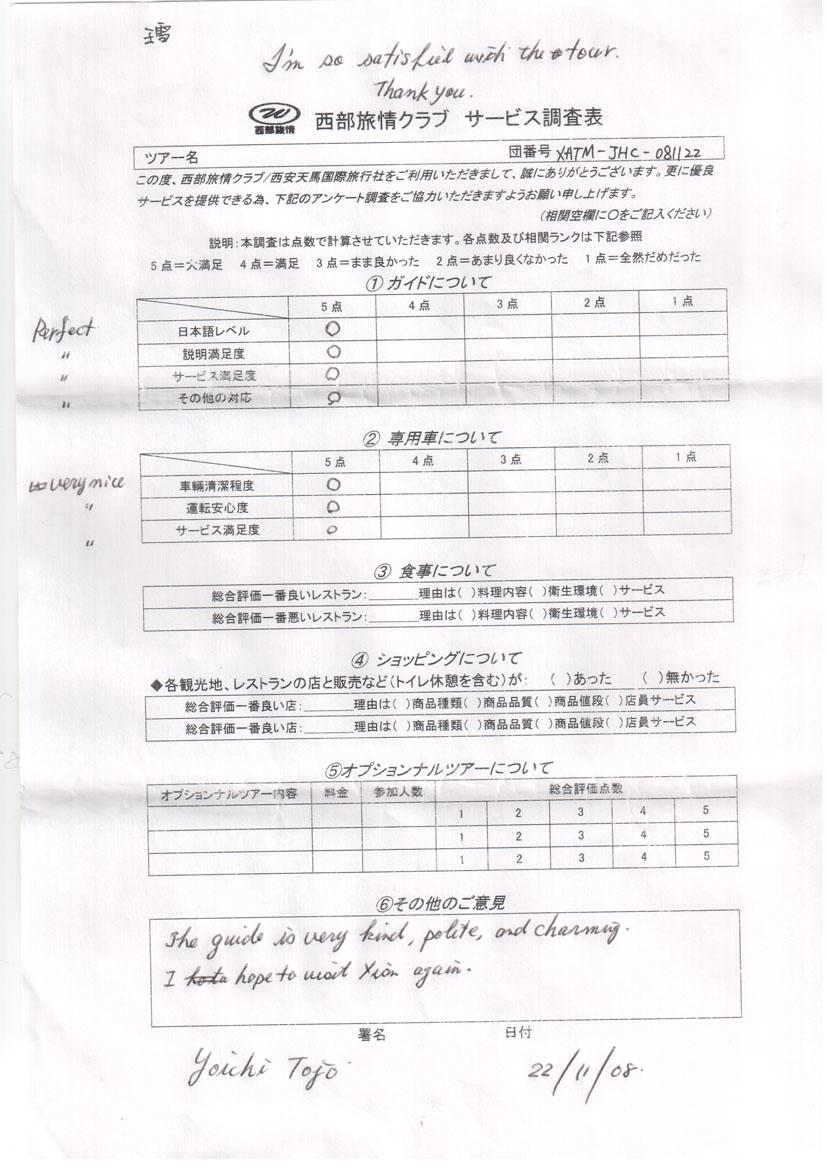 I'm so satisfied with the tour.
Thank you.
西部旅情
西部旅情クラブ サービス調査表
ツアー名 団番号 XATM-JHC-081122
この度、西部旅情クラブ/西安天馬国際旅行社をご利用いただきまして、誠にありがとうございます。更に優良
サービスを提供できる為、下記のアンケート調査をご協力いただきますようお願い申し上げます。
(相関空欄に〇をご記入ください)
説明:本調査は点数で計算させていただきます。各点数及び相関ランクは下記参照
5点=大満足 4点=満足 3点=まま良かった 2点=あまり良くなかった 1点=全然だめだった
①ガイドについて
5点 4点 3点 2点 1点
Perfect 日本語レベル 〇
〃 説明満足度 〇
〃 サービス満足度 〇
〃 その他の対応 〇
② 専用車について
5点 4点 3点 2点 1点
very nice 車輛清潔程度 〇
〃 運転安心度 〇
〃 サービス満足度 〇
③ 食事について
総合評価一番良いレストラン:_______理由は( )料理内容( )衛生環境( )サービス
総合評価一番悪いレストラン:_______理由は( )料理内容( )衛生環境( )サービス
④ ショッピングについて
◆各観光地、レストランの店と販売など(トイレ休憩を含む)が: ( )あった ( )無かった
総合評価一番良い店:_______理由は( )商品種類( )商品品質( )商品値段( )店員サービス
総合評価一番良い店:_______理由は( )商品種類( )商品品質( )商品値段( )店員サービス
⑤オプションナルツアーについて
オプションナルツアー内容 料金 参加人数 総合評価点数
1 2 3 4 5
1 2 3 4 5
1 2 3 4 5
⑥その他のご意見
The guide is very kind, polite, and charming.
I hope to visit Xian again.
署名 日付
Yoichi Tojo 22/11/08.